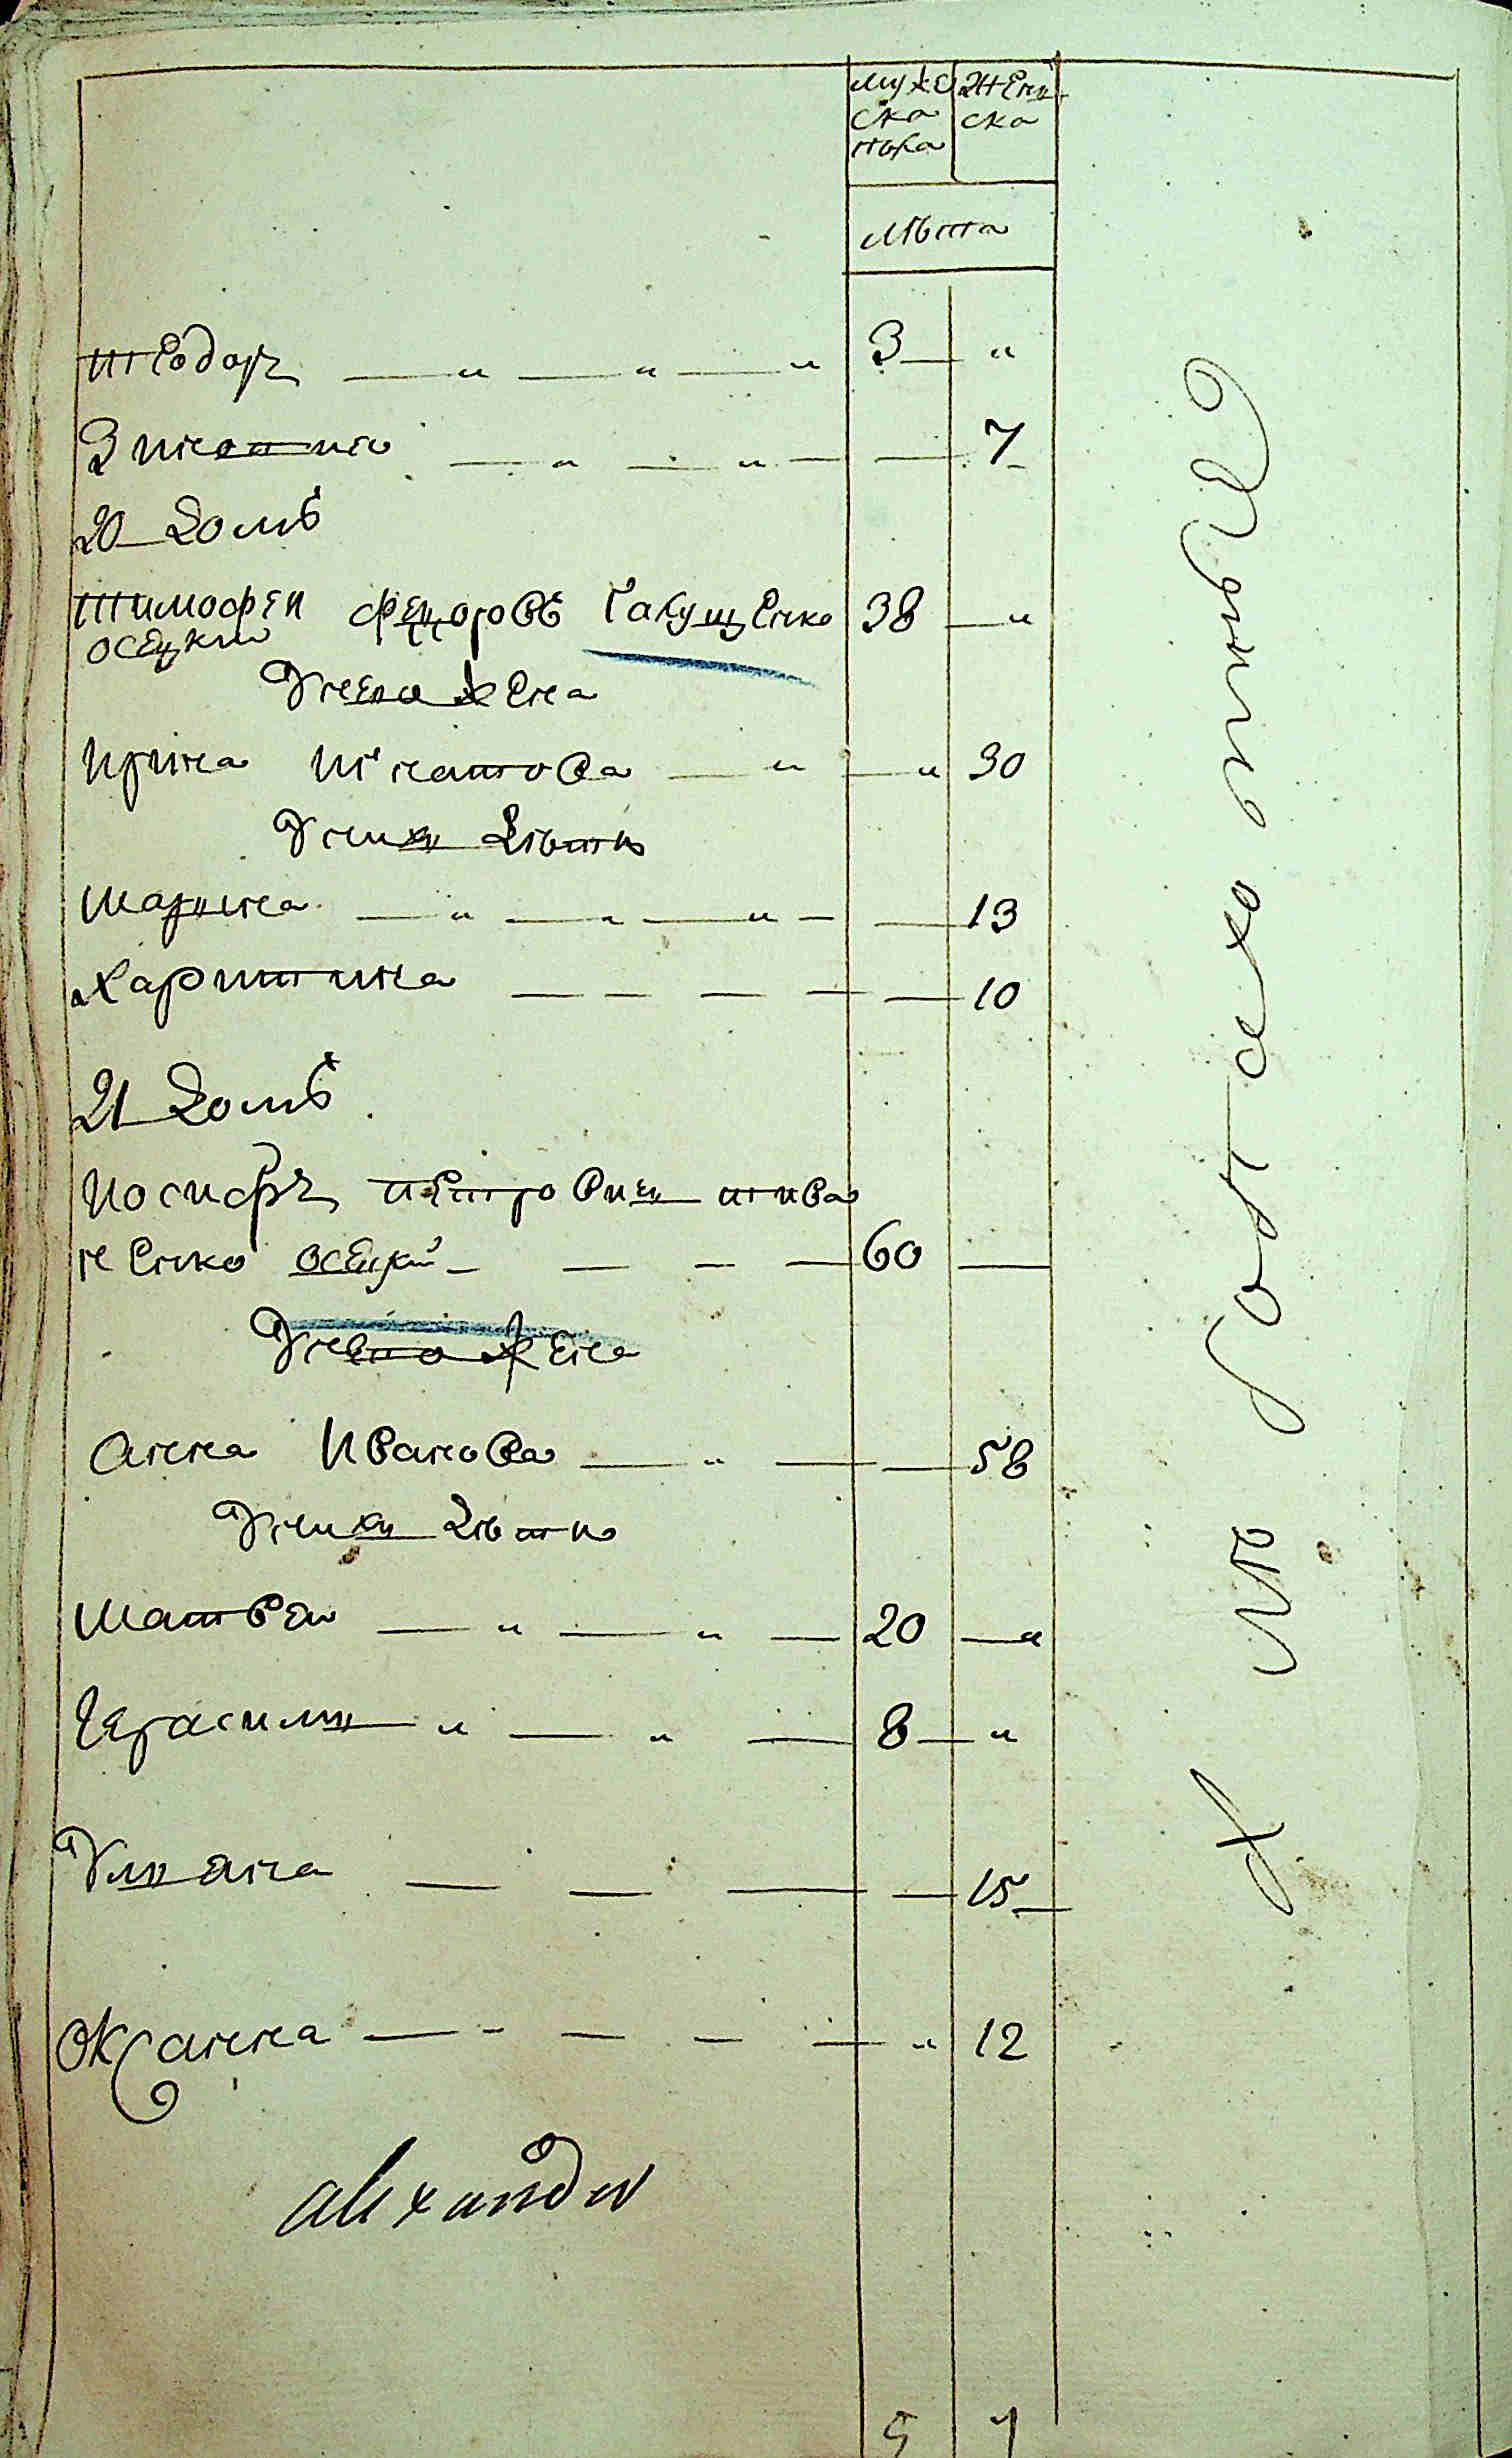 мужеска пола женска
лѣта
Теодоръ 3 "
Зиновия 7
20 Домъ
Тимофей Федоровъ Гакущенко 38 "
осецкий
У него жена
Ирина Игнатова " 30
У них дѣти
Марина 13
Харитина 10
21 Домъ
Иосифъ Петрович Пива
ненко осецкий 60
У него жена
Анна Иванова 58
У них дѣти
Матвей 20 "
Герасим 8 "
Улиана 15
Оксанна " 12
5 7